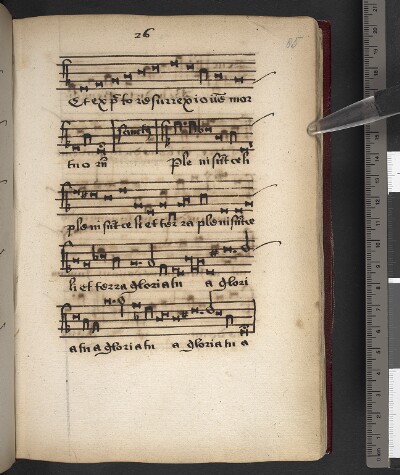 26
85
Et expecto resurrexioneʒ mor
tuorū Sanctus Pleni sūt celi
pleni sūt celi et terra pleni sūt ce
li et terra gloria tu a glori
a tu a gloria tu a gloria tu a